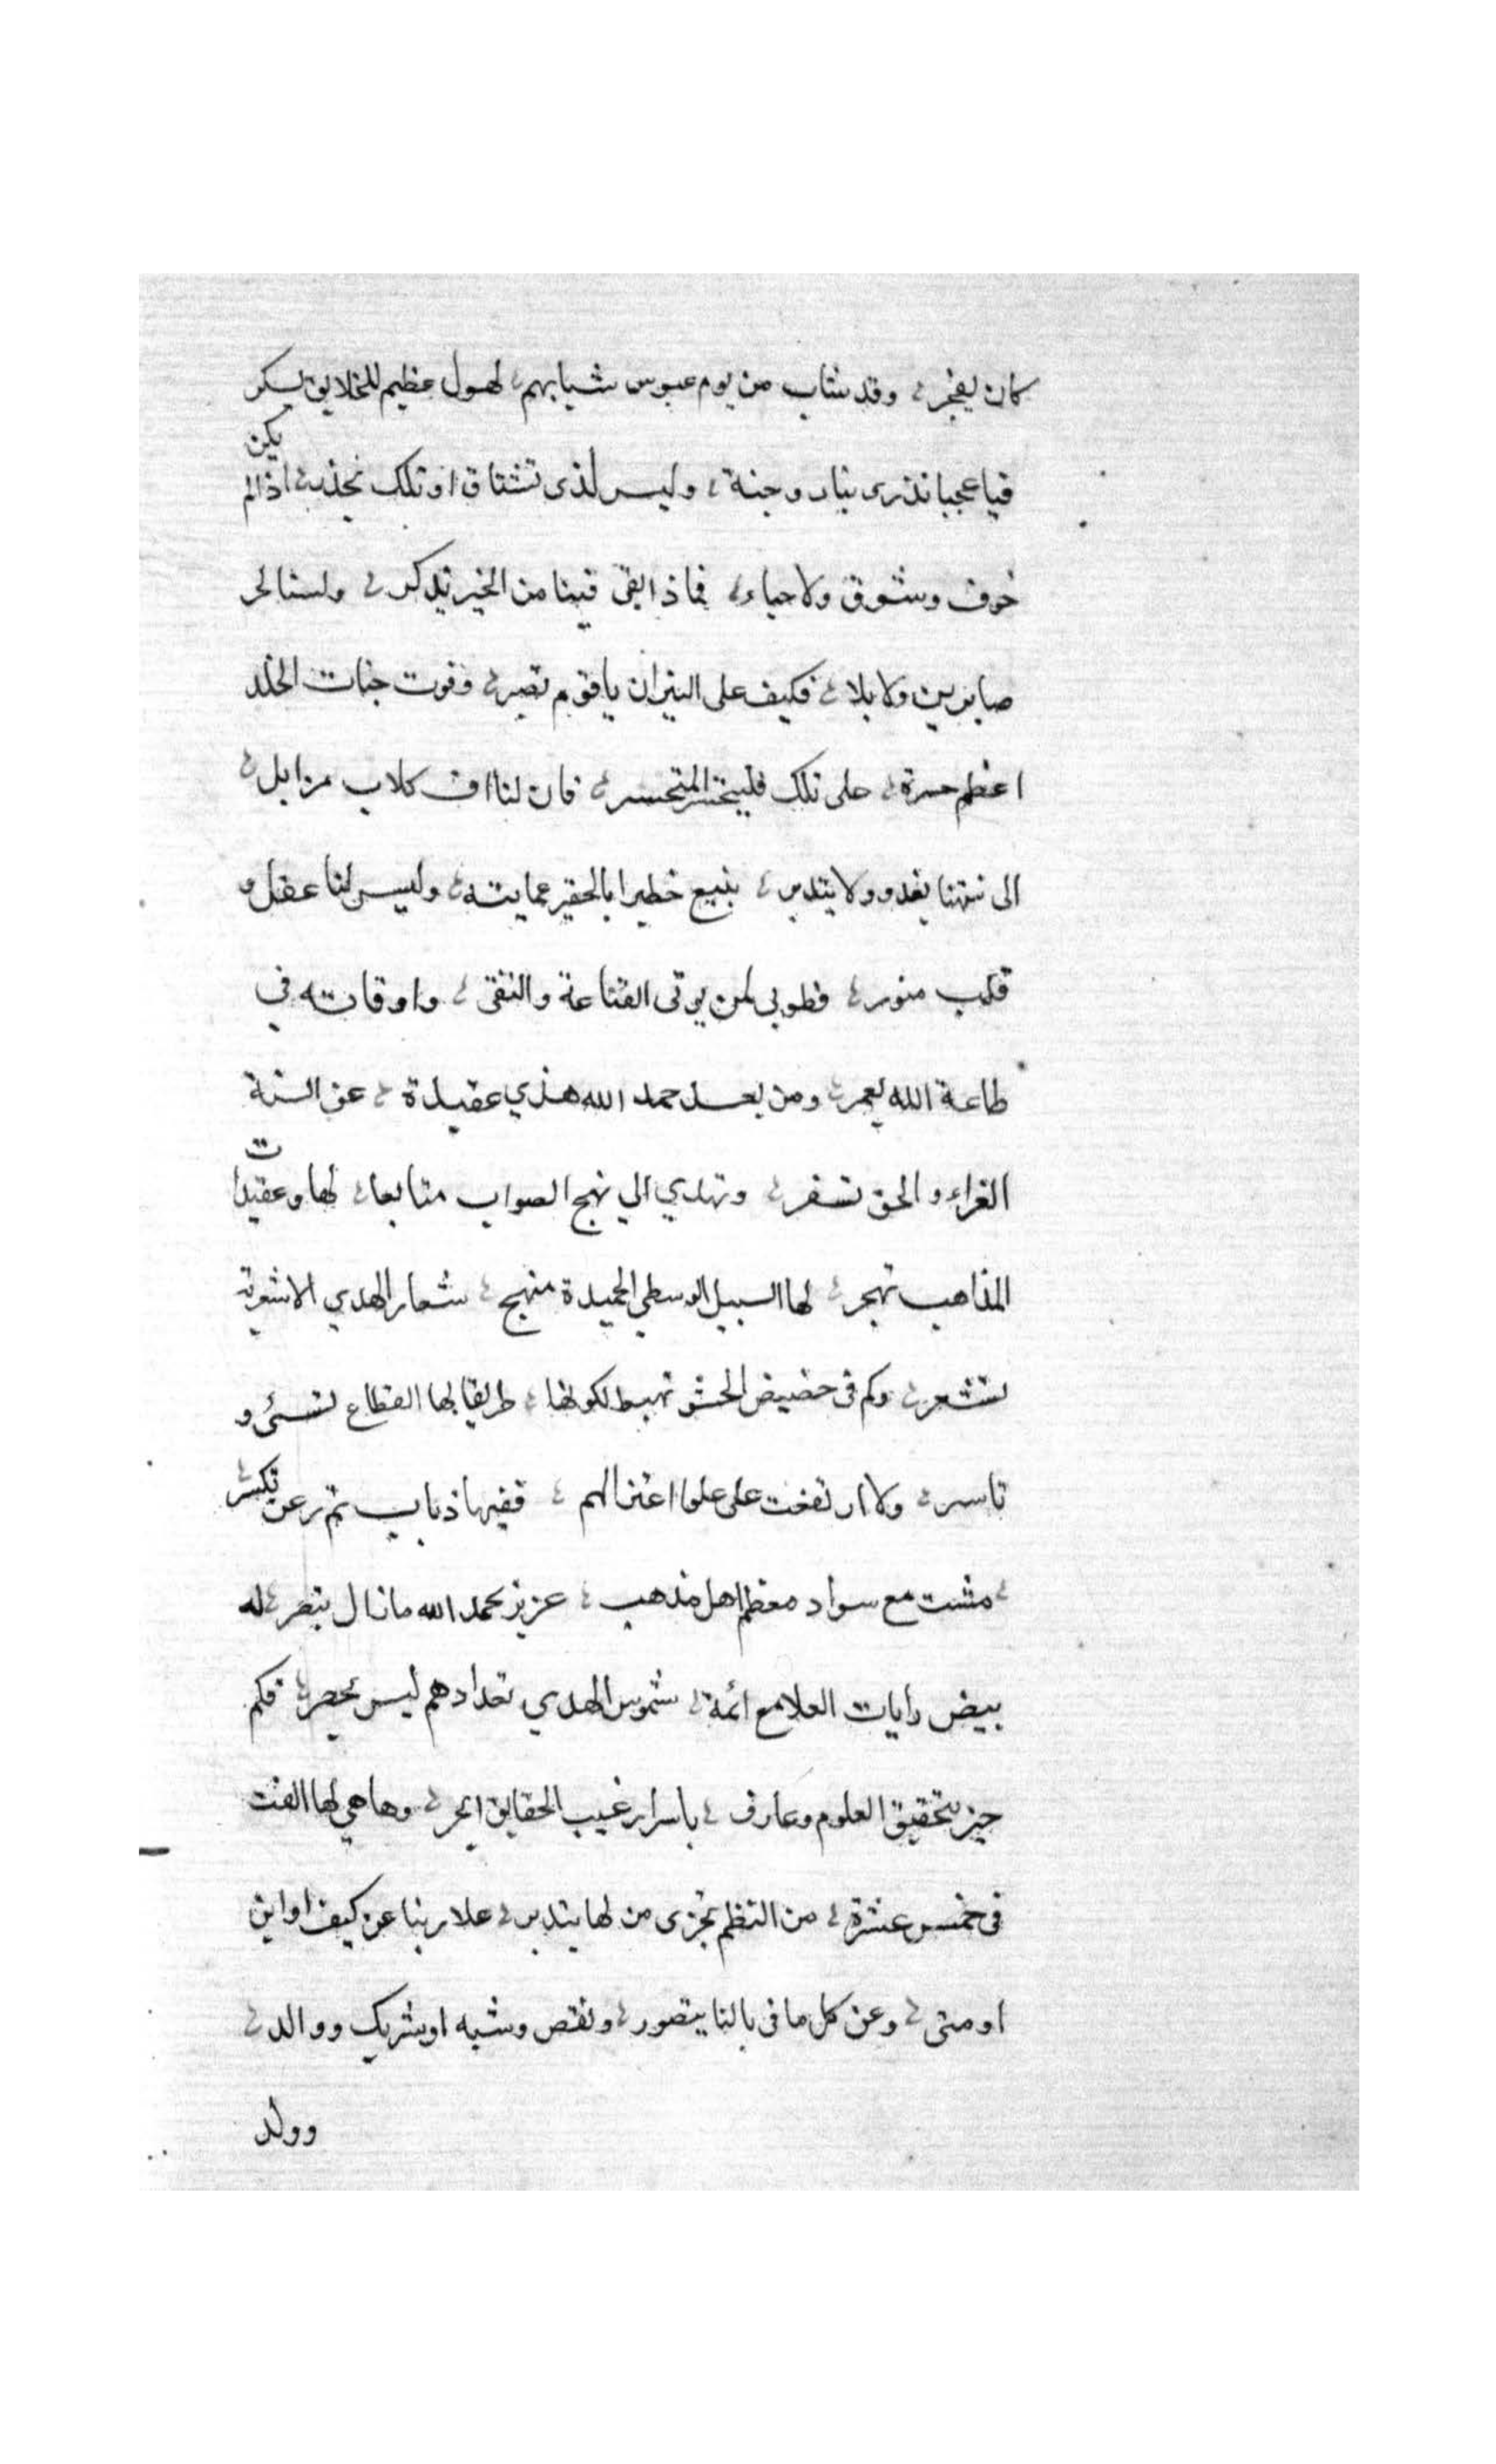 كان يفجر ؛ وقد شاب من يوم عبوس شبابهم ؛ لهول عظيم للخلايق يسكر
فيا عجبا نذرى بنار وجنة ؛ وليس لذى تشتاق او تلك نحذر ؛ اذا لم يكن
خوف وشوق ولا حياء ؛ فماذا بقى فينا من الخير يذكر ؛ ولسنا لحر
صابرين ولا بلا ؛ فكيف على النيران يا قوم نصبر ؛ وفوت جنات الخلد
اعظم حسرة ؛ على تلك فليتحسر المتحسر ؛ فان لنا اف كلاب مزابل ؛
الى نتنها نغدو ولا نتدبر ؛ نبيع خطيرا بالحقير عماية ؛ وليس لنا عقل و
قلب منور ؛ فطوبى لمن يوتى القناعة والتقى ؛ واوقاته في
طاعة الله يعمر ؛ ومن بعد حمد الله هذي عقيدة ؛ عن السنة
الغراء والحق تسفر ؛ وتهدي الي نهج الصواب متابعا ؛ لها وعقيدات
المذاهب تهجر ؛ لها السبيل الوسطي الحميدة منهج ؛ شعار الهدي الاشعرية
تشعر ؛ وكم فى حضيض الحشو تهبط لكونها ؛ طريقا بها القطاع تسبى و
تاسر ؛ ولا ارتفعت على علو اعتزالهم ؛ ففيها ذياب ثم زعن تكسر
؛ مشت مع سواد معظم اهل مذهب ؛ عزيز بحمد الله مازال ينصر ؛ له
بيض رايات العلا مع ائمة ؛ شموس الهدي تعدادهم ليس يحصر ؛ فكم
حبر بتحقيق العلوم وعارف ؛ باسرار غيب الحقايق ابحر ؛ وها هي لها الفت
فى خمس عشرة ؛ من النظم تجزى من لها يتدبر ؛ علا ربنا عن كيف او اين
او متى ؛ وعن كل ما فى بالنا يتصور ؛ ونقص وشبه او شريك ووالد ؛
وولد